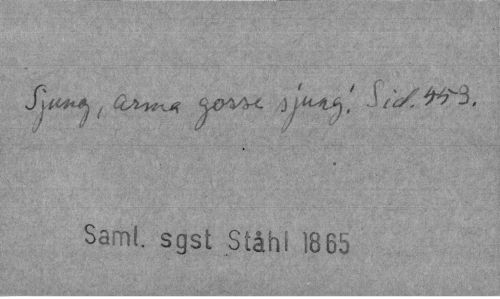 Sjung, arma gosse sjung! Sid. 553.
Saml. sgst Ståhl 1865